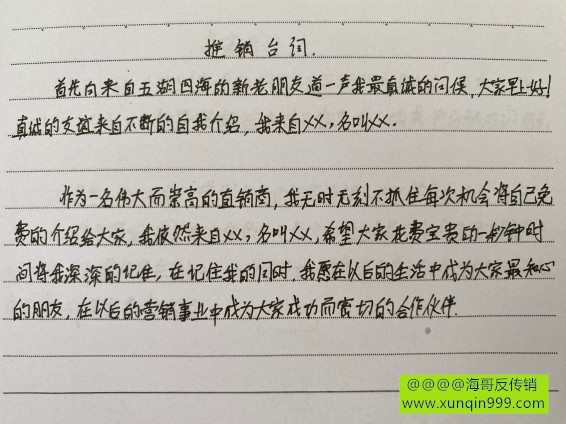 推销台词.
首先向来自五湖四海的新老朋友道一声我最真诚的问候,大家早上好!
真诚的友谊来自不断的自我介绍,我来自XX,名叫XX.
作为一名伟大而崇高的直销商,我无时无刻不抓住每次机会将自己免
费的介绍给大家,我依然来自XX,名叫XX,希望大家花费宝贵的一秒钟时
间将我深深的记住,在记住我的同时,我愿在以后的生活中成为大家最知心
的朋友,在以后的营销事业中成为大家成功而密切的合作伙伴.
@@@@海哥反传销
www.xunqin999.com